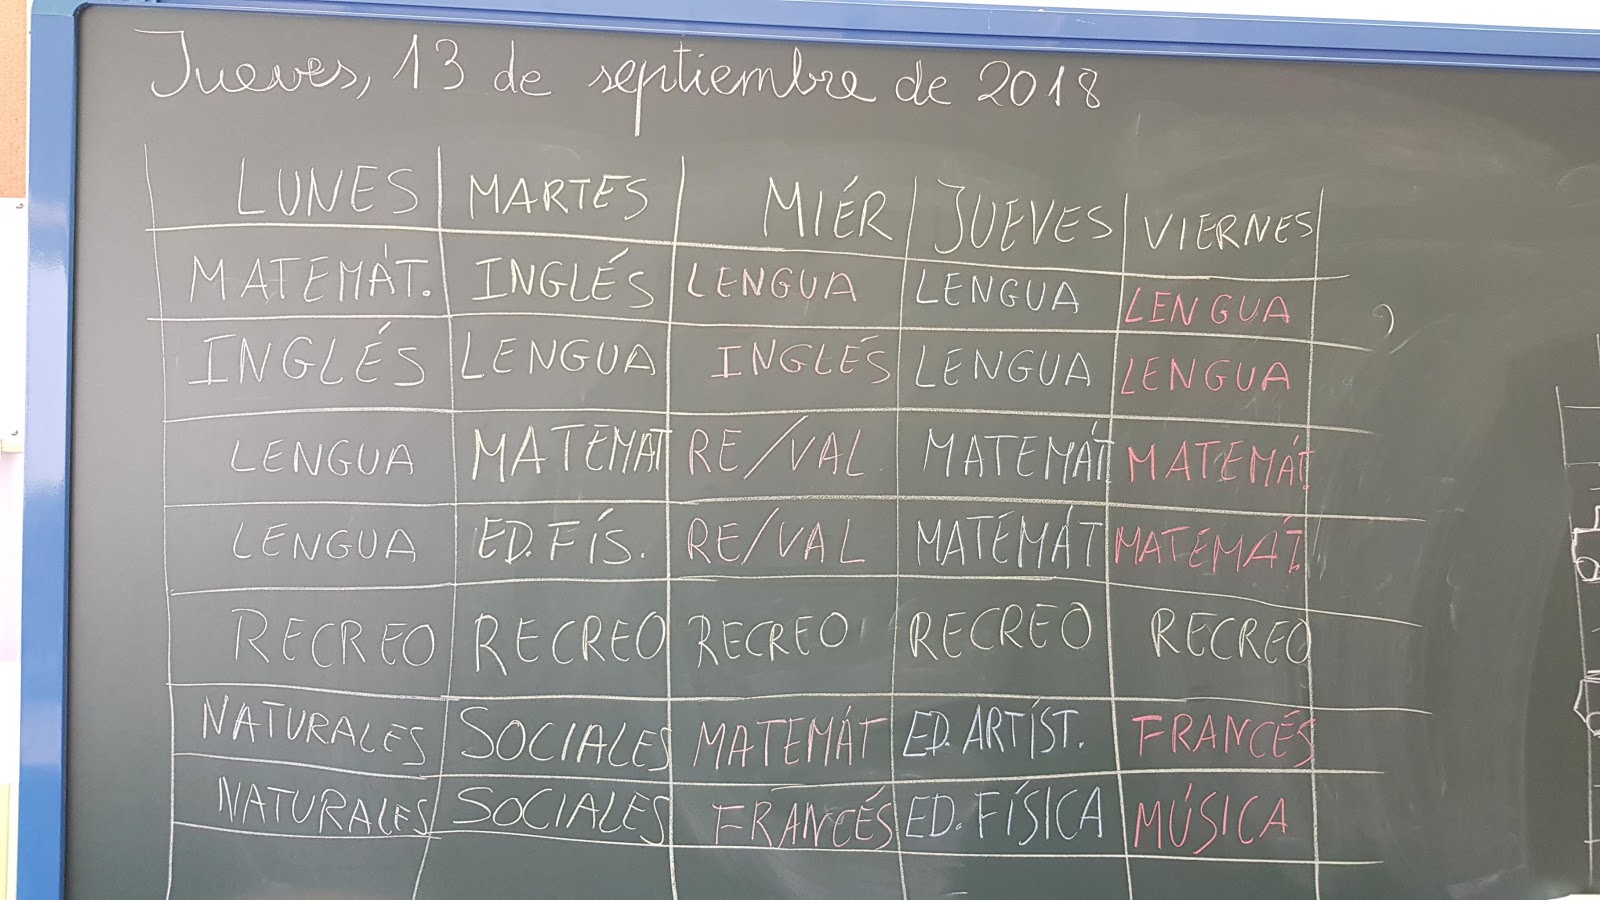 Jueves, 13 de septiembre de 2018
LUNES MARTES MIÉR JUEVES VIERNES
MATEMÁT. INGLÉS LENGUA LENGUA LENGUA
INGLÉS LENGUA INGLÉS LENGUA LENGUA
LENGUA MATEMAT RE/VAL. MATEMÁT. MATEMÁT.
LENGUA ED. FÍS. RE/VAL MATEMÁT MATEMÁT.
RECREO RECREO RECREO RECREO RECREO
NATURALES SOCIALES MATEMÁT ED. ARTÍST. FRANCÉS
NATURALES SOCIALES FRANCÉS ED. FÍSICA MÚSICA